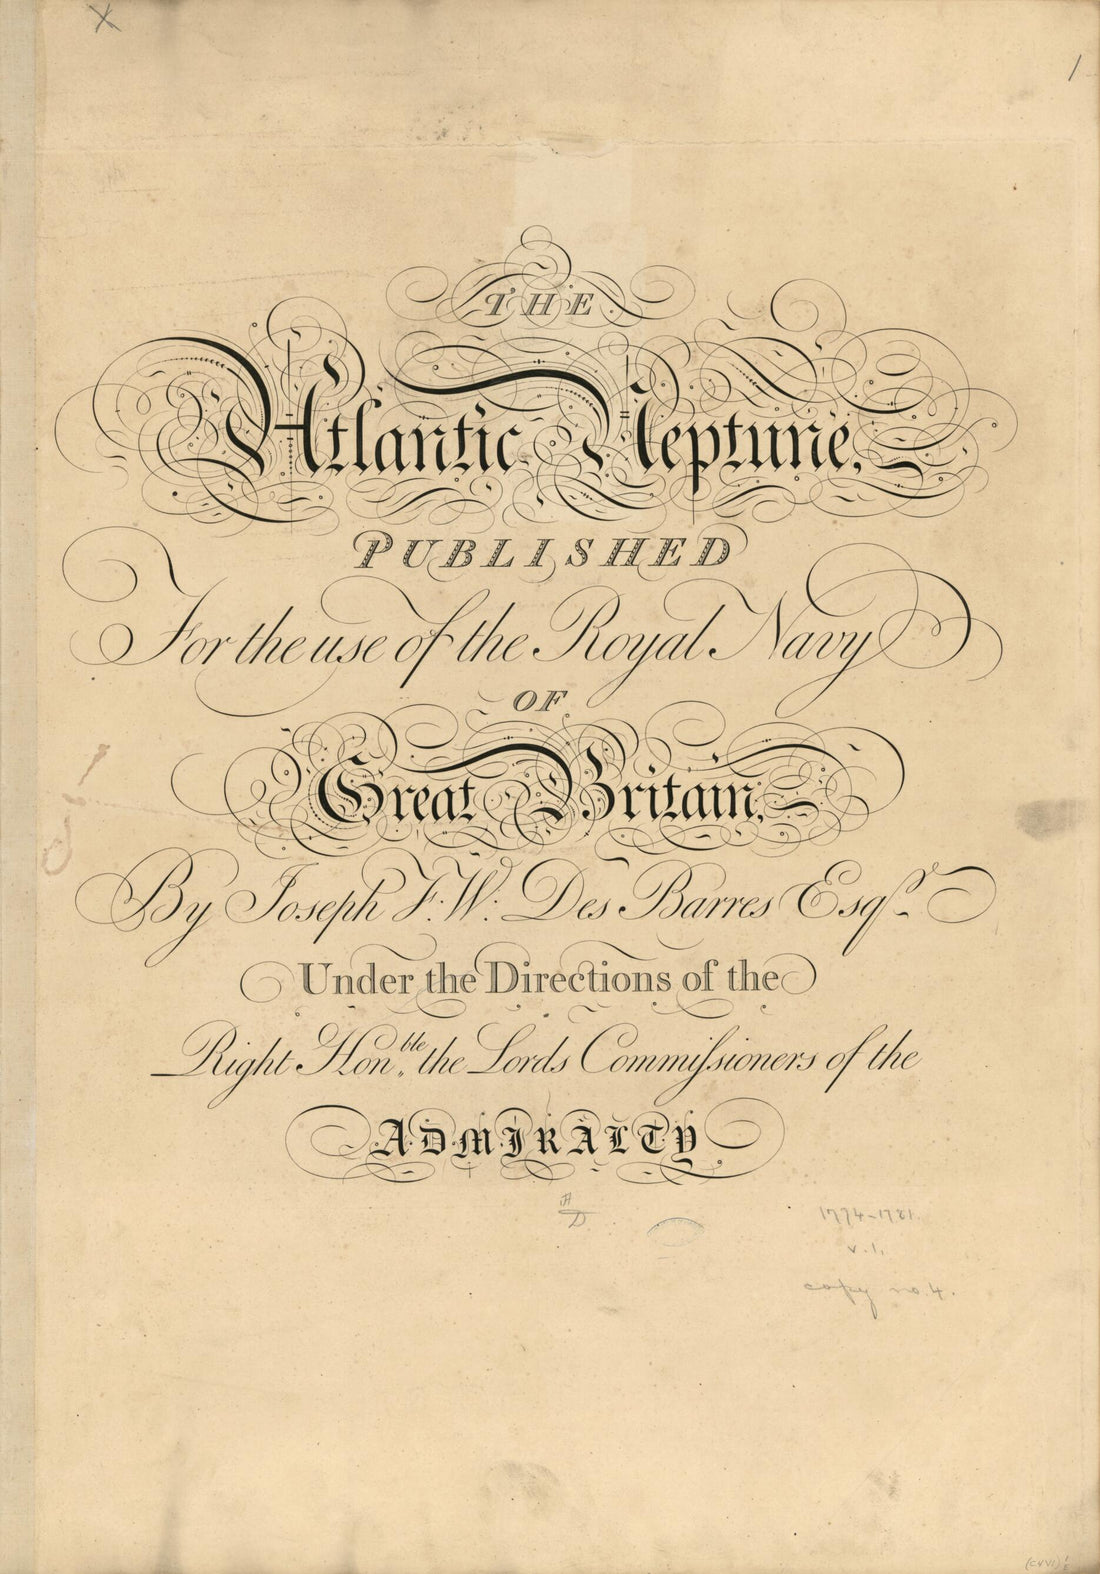 X
/
THE
Atlantic Neptune,
PUBLISHED
For the use of the Royal Navy
OF
Great Britain,
By Joseph F. W: Des Barres Esqr.
Under the Directions of the
Right Honble. the Lords Commiſsioners of the
ADMIRALTY
H
D
1774-1781.
v. 1.
copy no. 4.